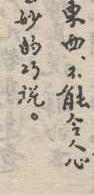 東西、不能令人心
妙的巧說。